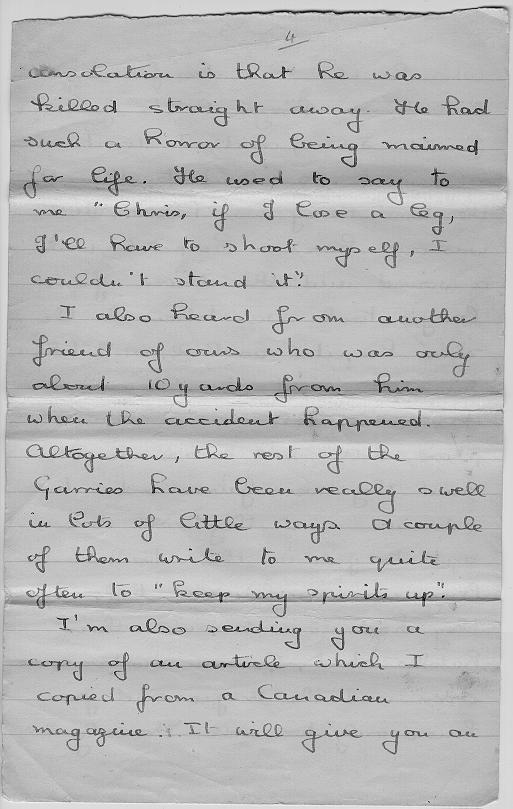 4
consolation is that he was
killed straight away. He had
such a horror of being maimed
for life. He used to say to
me "Chris, if I lose a leg,
I'll have to shoot myself, I
couldn't stand it".
I also heard from another
friend of ours who was only
about 10 yards from him
when the accident happened.
Altogether, the rest of the
Garries have been really swell
in lots of little ways. A couple
of them write to me quite
often to "keep my spirits up".
I'm also sending you a
copy of an article which I
copied from a Canadian
magazine. It will give you an